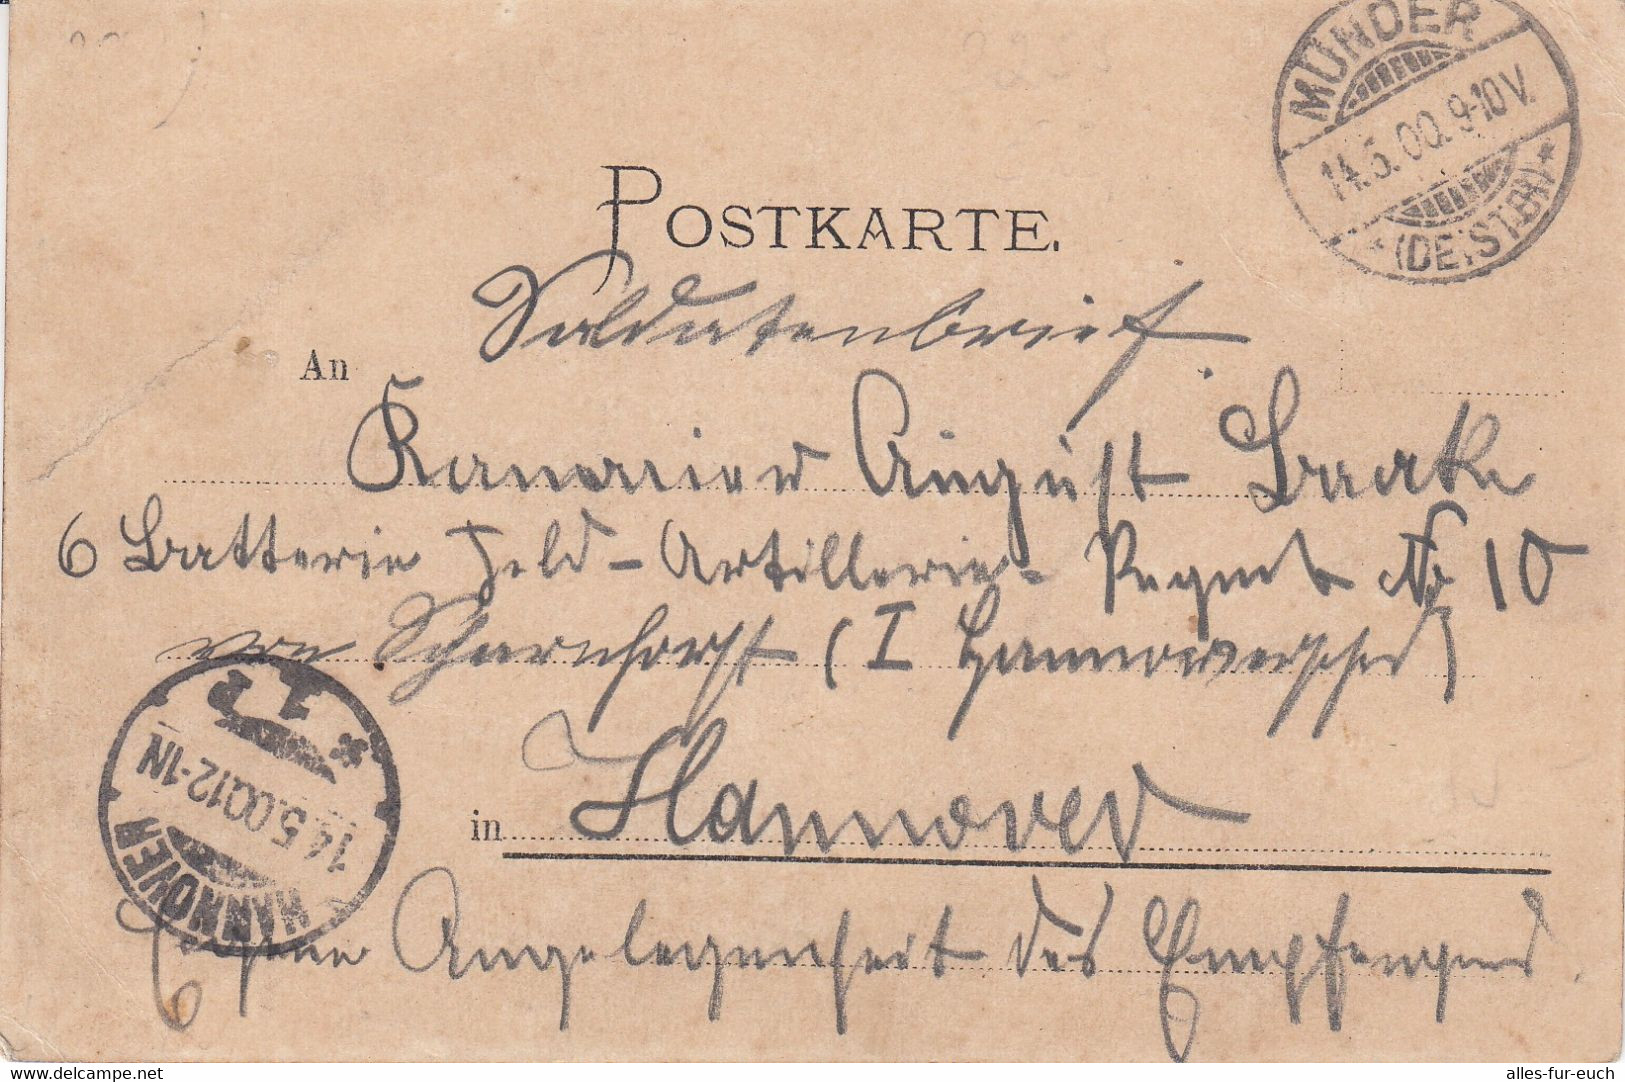 MÜNDER
14.5.00.9-10V.
* (DEISTER) *
POSTKARTE.
Soldatenbrief
An
Kanonier August Baake
6 Batterie Feld-Artillerie-Regmt No 10
von Scharnhorst (I Hannoversches)
in Hannover
HANNOVER
14.5.00.12-1N
* 1 P
Eigene Angelegenheit des Empfängers.
www.delcampe.net
alles-fur-euch